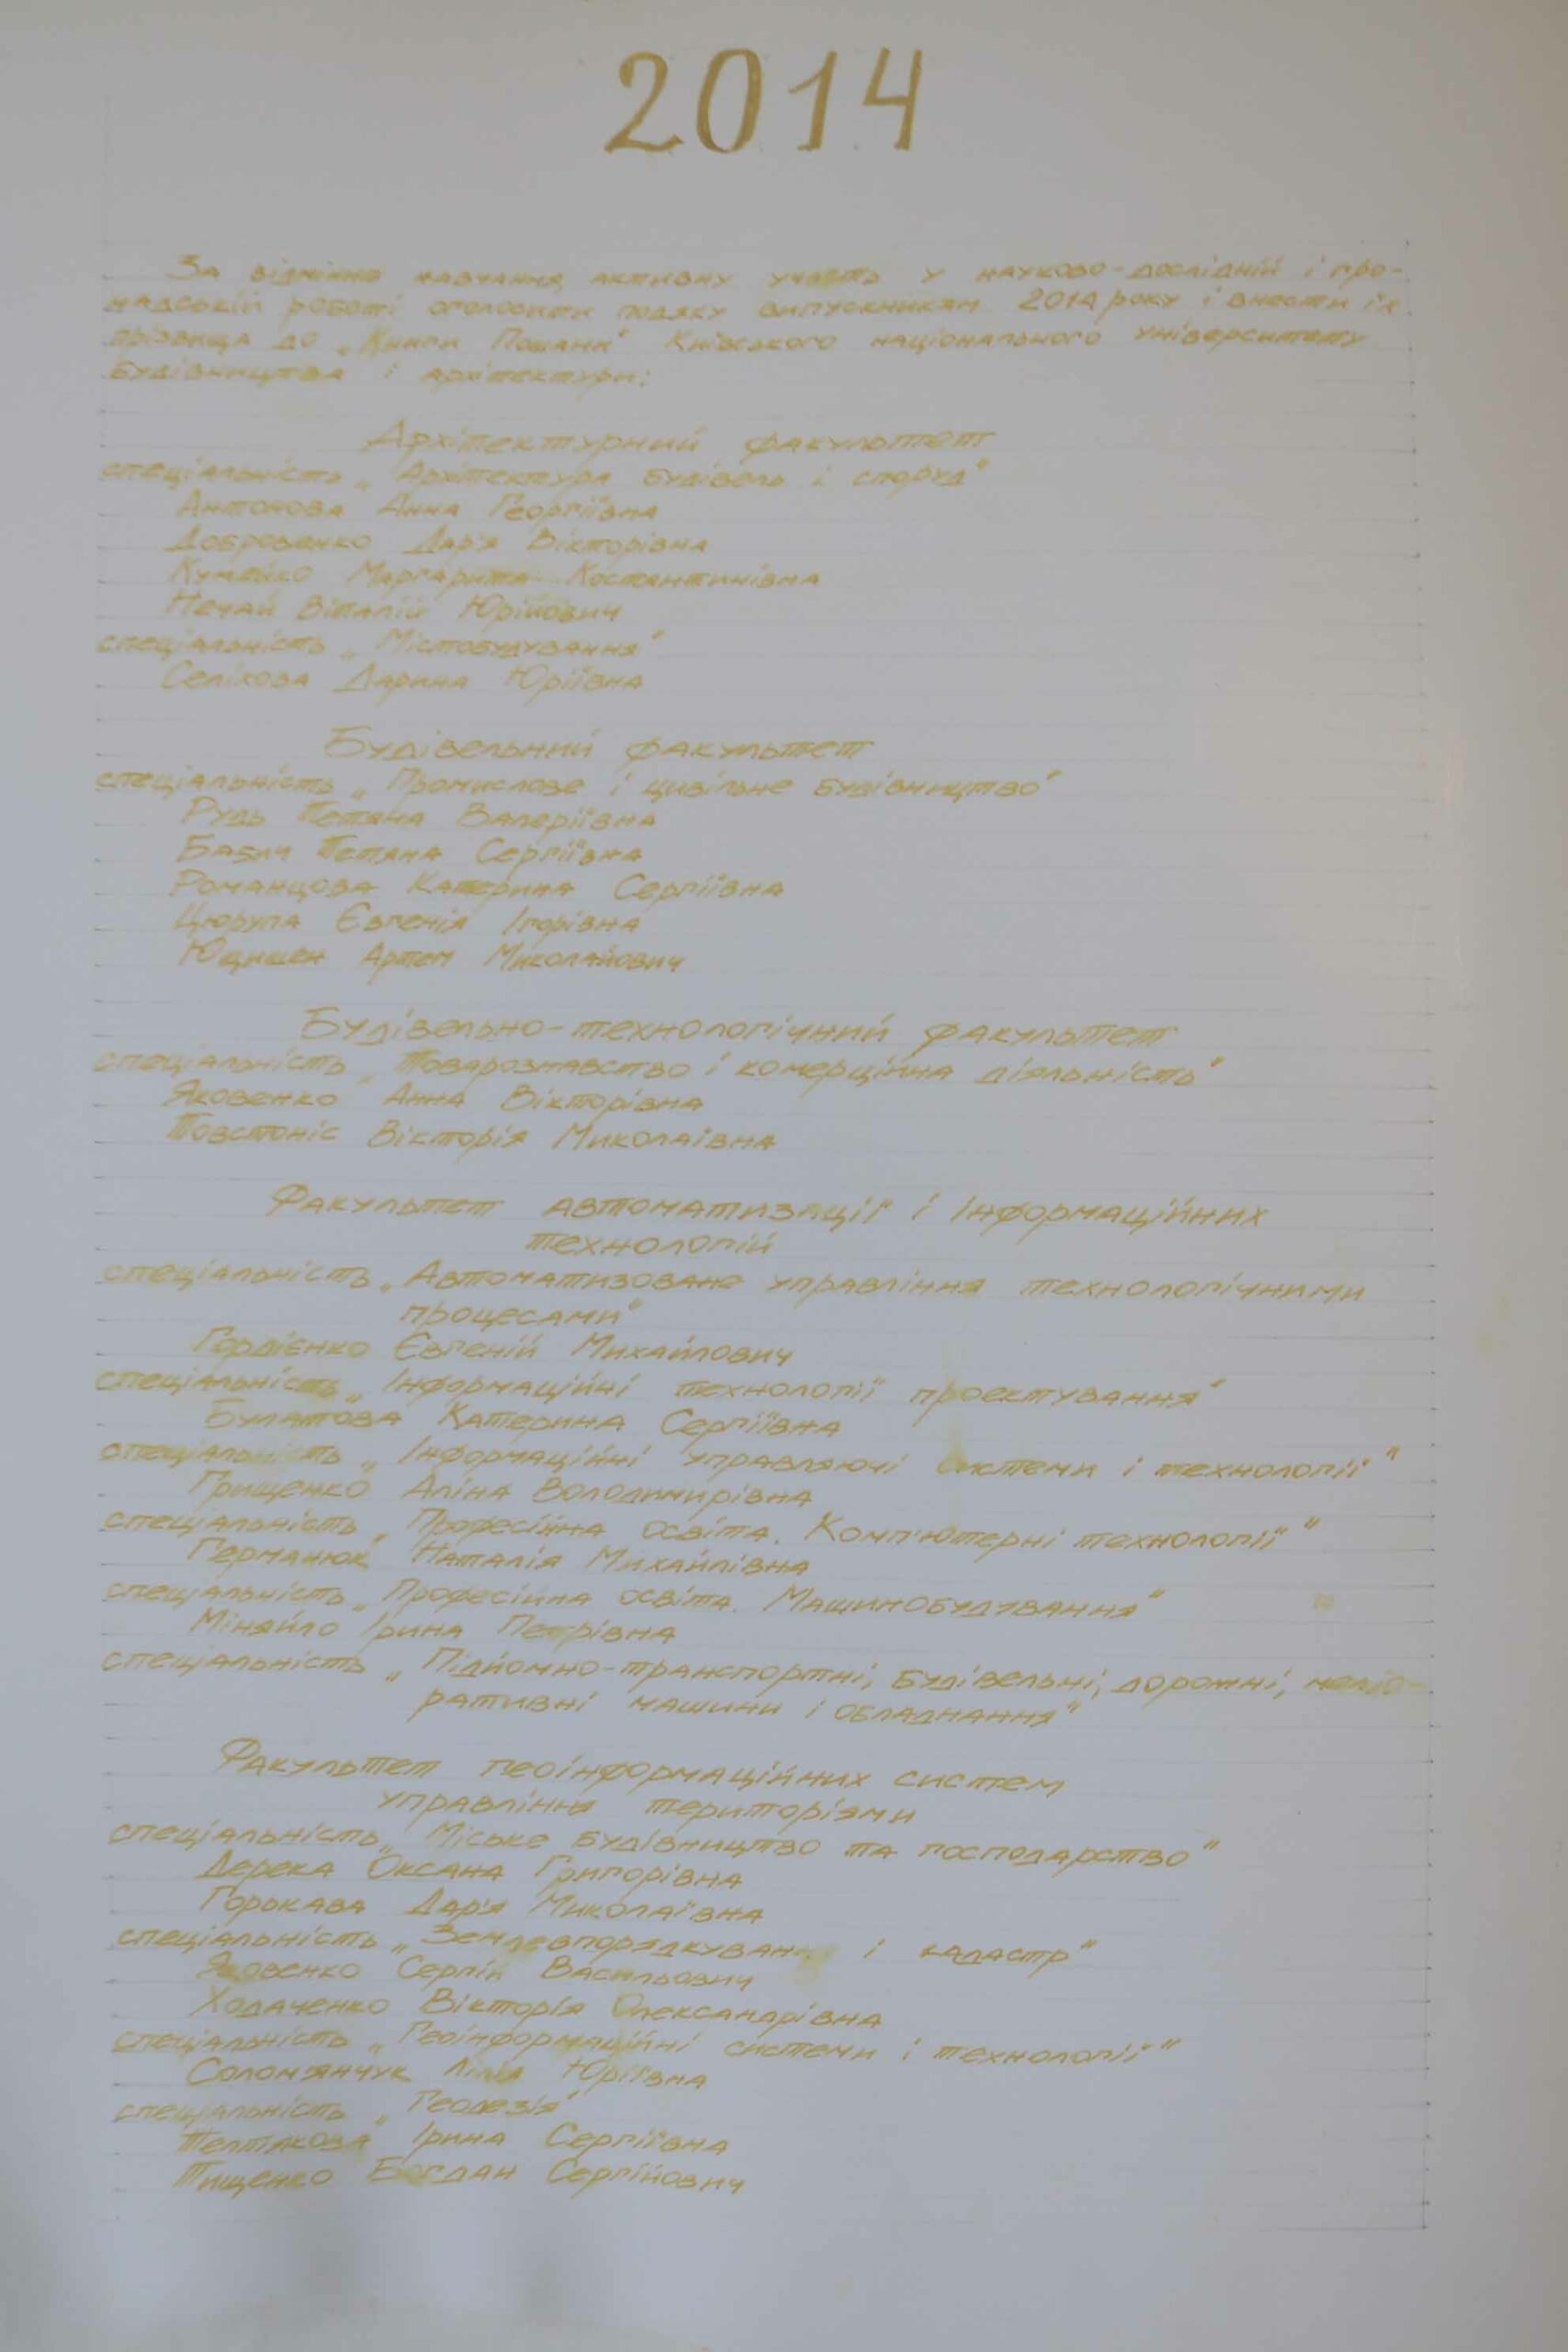 2014
За відмінне навчання, активну участь у науково-дослідній і гро-
мадській роботі оголосити подяку випускникам 2014 року і внести їх
прізвища до „Книги Пошани" Київського національного університету
будівництва і архітектури:
Архітектурний факультет
спеціальність „Архітектура будівель і споруд"
Антонова Анна Георгіївна
Добровенко Дар'я Вікторівна
Маргарита Костянтинівна
Нечай Віталій Юрійович
спеціальність „Містобудування"
Селіхова Дарина Юріївна
Будівельний факультет
спеціальність „Промислове і цивільне будівництво"
Рудь Тетяна Валеріївна
Бабич Тетяна Сергіївна
Романцова Катерина Сергіївна
Цюрупа Євгенія Ігорівна
Ющишен Артем Миколайович
Будівельно-технологічний факультет
спеціальність „Товарознавство і комерційна діяльність"
Яковенко Анна Вікторівна
Товстоніс Вікторія Миколаївна
Факультет автоматизації і інформаційних
технологій
спеціальність „Автоматизоване управління технологічними
процесами"
Гордієнко Євгеній Михайлович
спеціальність „Інформаційні технології проектування"
Булатова Катерина Сергіївна
спеціальність „Інформаційні управляючі системи і технології"
Грищенко Аліна Володимирівна
спеціальність „Професійна освіта. Комп'ютерні технології"
Германюк Наталія Михайлівна
спеціальність „Професійна освіта. Машинобудування"
Міняйло Ірина Петрівна
спеціальність „Підйомно-транспортні, будівельні, дорожні, меліо-
ративні машини і обладнання"
Факультет геоінформаційних систем
управління територіями
спеціальність „Міське будівництво та господарство"
Дерека Оксана Григорівна
Горькава Дар'я Миколаївна
спеціальність „Землевпорядкування і кадастр"
Яковенко Сергій Васильович
Ходаченко Вікторія Олександрівна
спеціальність „Геоінформаційні системи і технології"
Солом'янчук Лілія Юріївна
спеціальність „Геодезія"
Ірина Сергіївна
Тищенко Богдан Сергійович